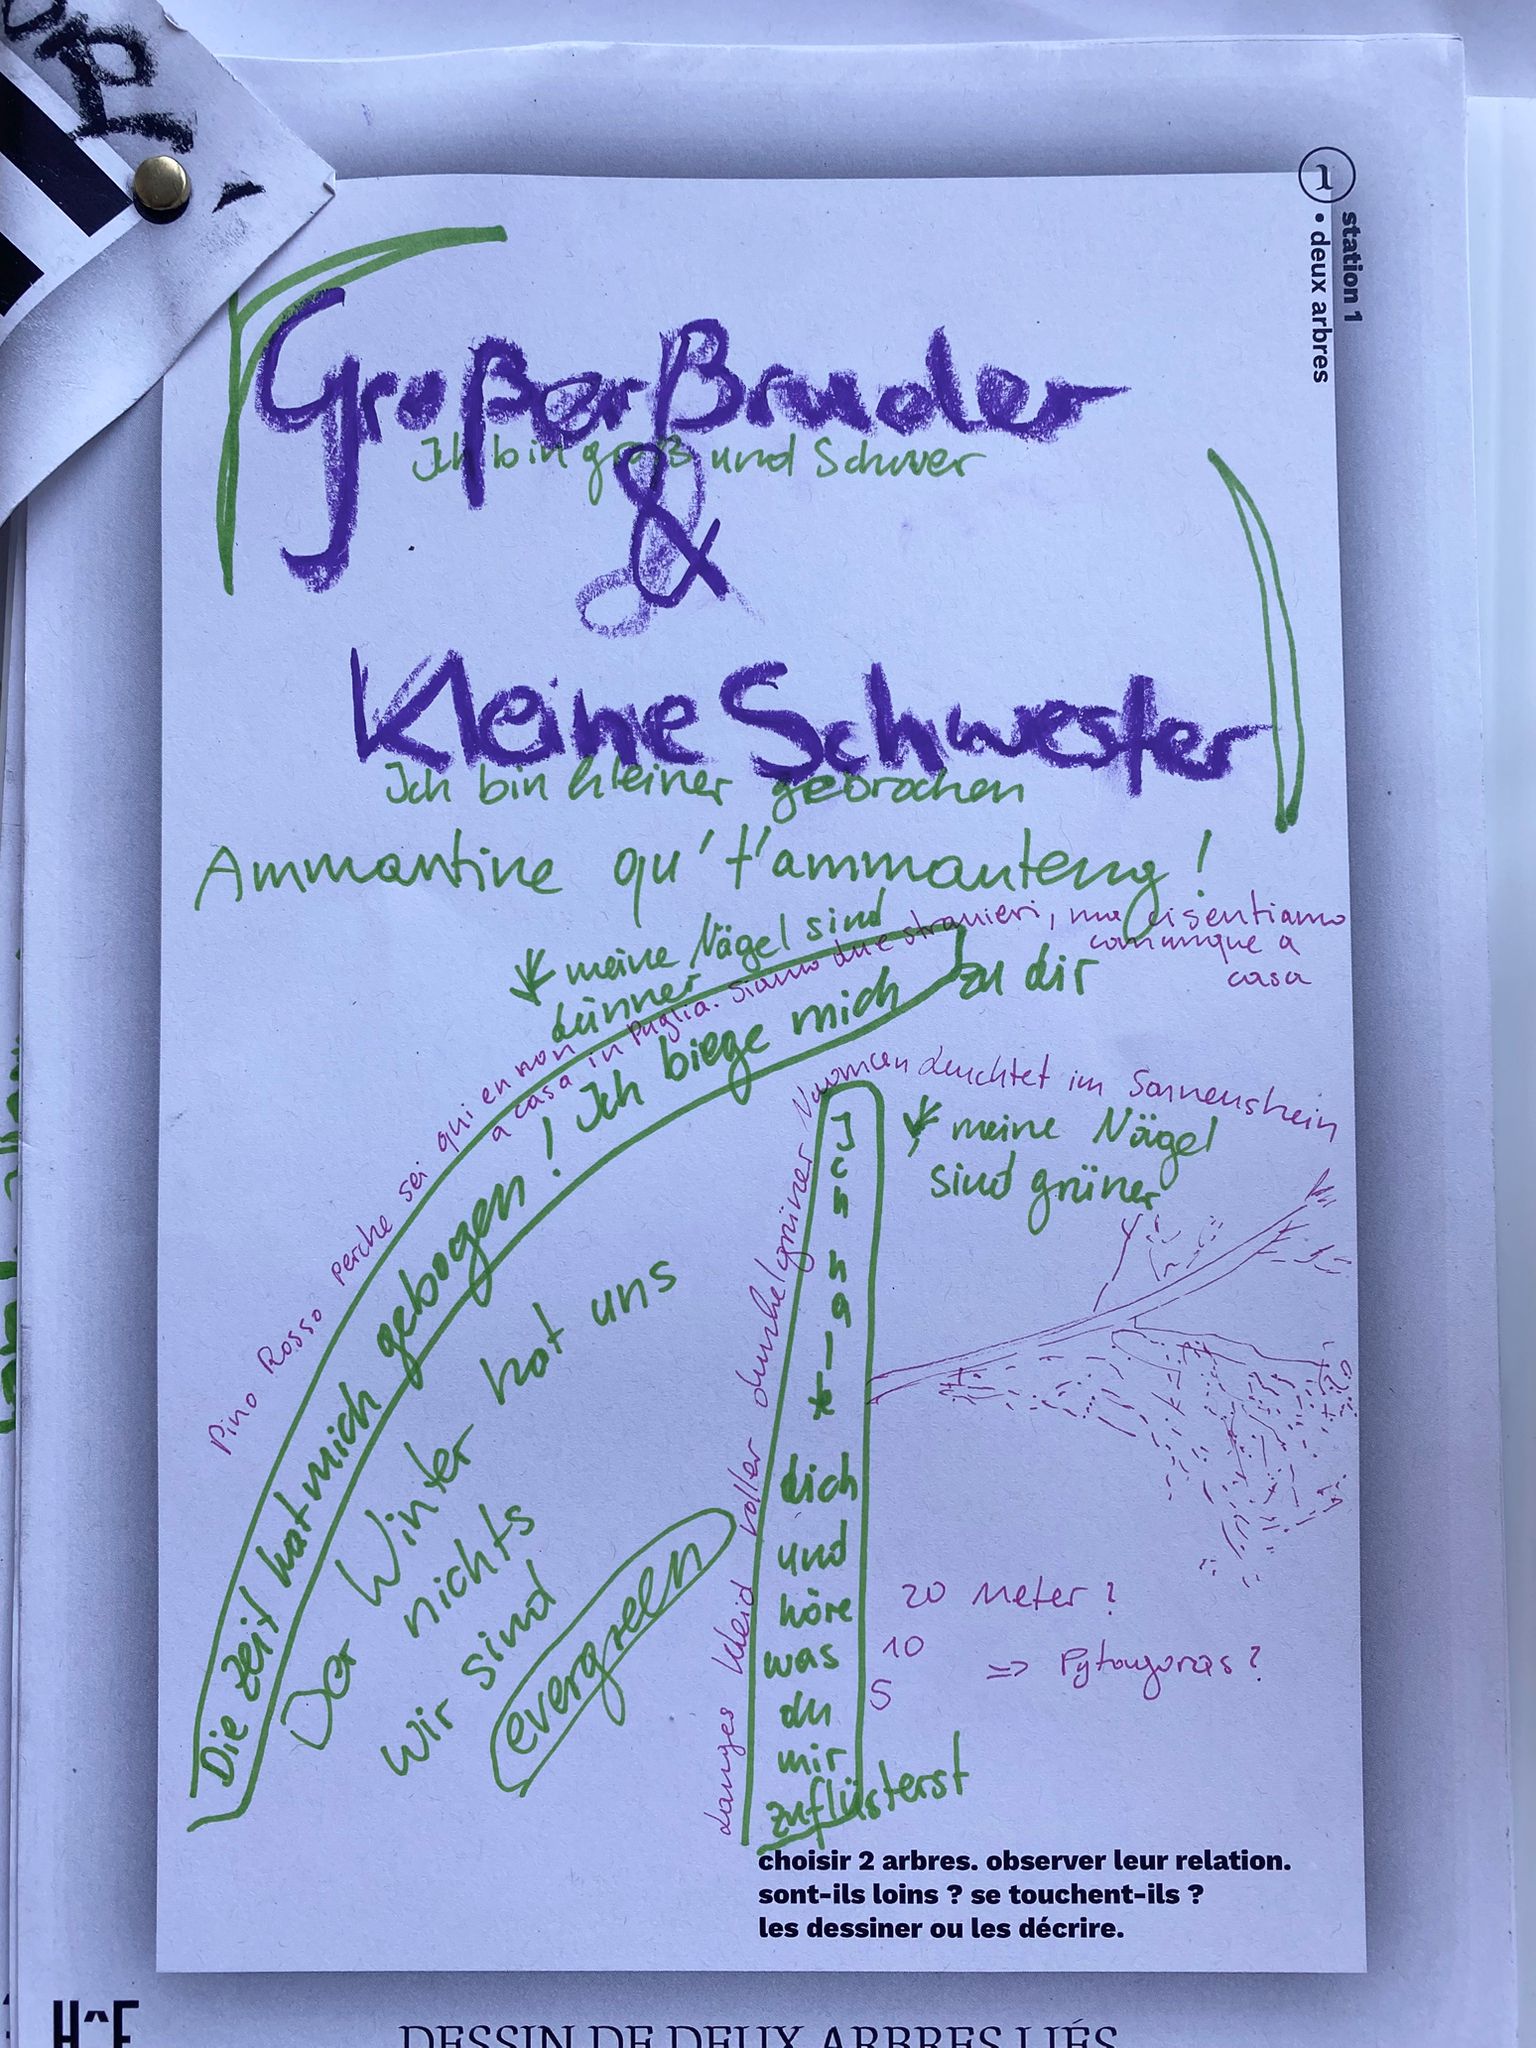 1
station 1
• deux arbres
Großer Bruder
Ich bin groß und Schwer
&
Kleine Schwester
Ich bin kleiner gebrochen
Ammantine qu't'ammanteng!
meine Nägel sind
dünner
Pino Rosso perche sei qui e non
a casa in Puglia. Siamo due stranieri, ma ci sentiamo
comunque a
casa
Die Zeit hat mich gebogen! Ich biege mich zu dir
Der Winter hat uns
nichts
wir sind
evergreen
Langes Kleid voller dunkelgrüner leuchtet im Sonnenshein
meine Nägel
sind grüner
Ich
halte
dich
und
höre
was
du
mir
zuflüsterst
20 Meter?
10
=> Pytagoras?
5
choisir 2 arbres. observer leur relation.
sont-ils loins ? se touchent-ils ?
les dessiner ou les décrire.
H^F
DESSIN DE DEUX ARBRES LIÉS